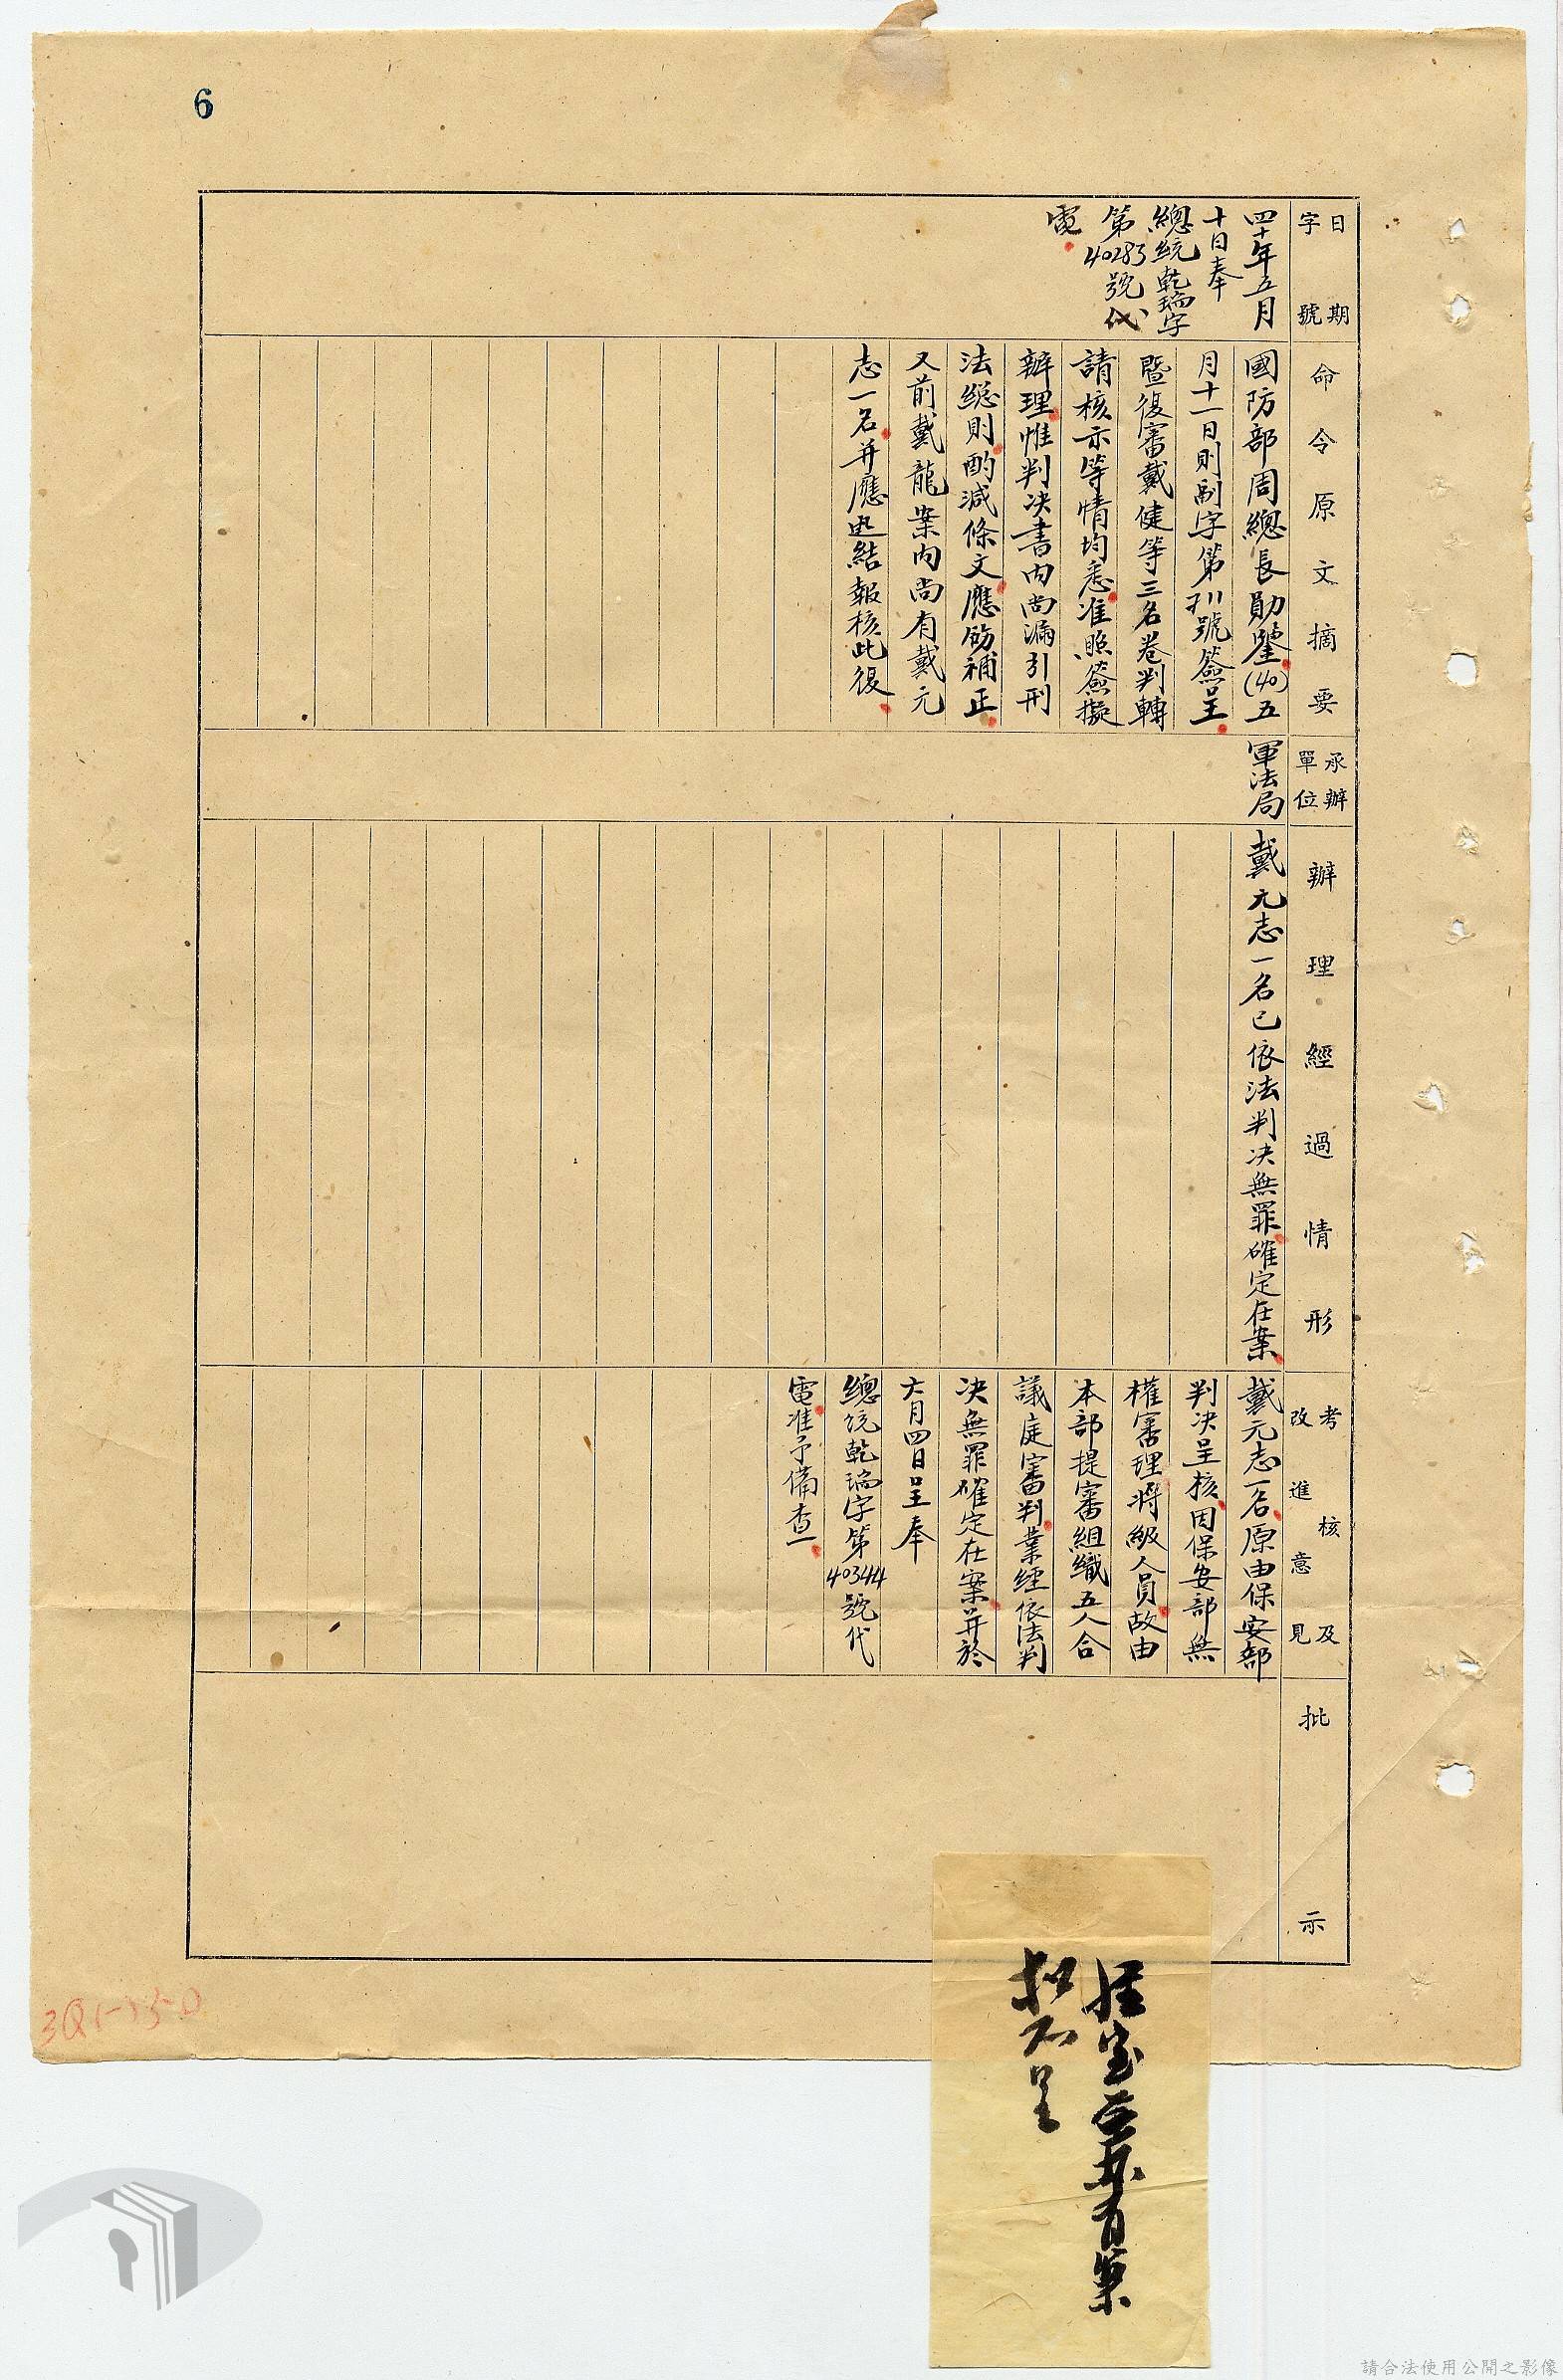 6
日期
字號
四十年五月
十日奉
總統乾瑞字
第40283號代
電
命令原文摘要
國防部周總長勛鑒(40)五
月十一日則副字第 號簽呈
暨復審戴健等三名卷判轉
請核示等情均悉准照簽擬
辦理惟判决書内尚漏引刑
法總則酌減條文應飭補正
又前戴龍案内尚有戴元
志一名并應迅結報核此復
承辦
單位
軍法局
辦理經過情形
戴元志一名已依法判决無罪確定在案
考核及
改進意見
戴元志一名原由保安部
判决呈核因保安部無
權審理將級人員故由
本部提審組織五人合
議庭審判業經依法判
决無罪確定在案并於
六月四日呈奉
總統乾瑞字第40344號代
電准予備查
批示
查 有案
不呈
請合法使用公開之影像